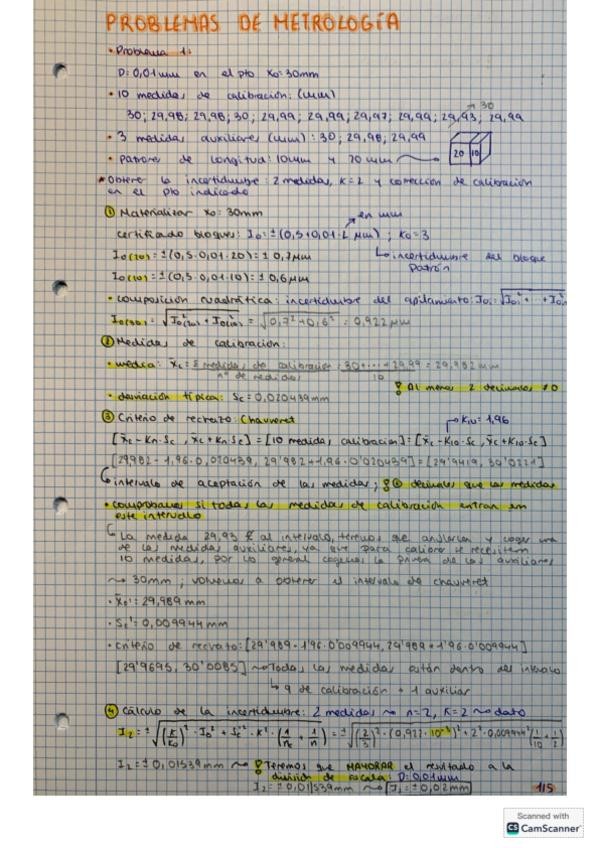 PROBLEMAS DE METROLOGÍA
• Problema 1:
D: 0,01 mm en el pto X₀: 30mm
• 10 medidas de calibración: (mm)
→ 30
30; 29,98; 29,98; 30; 29,99; 29,99; 29,97; 29,99; 29,93; 29,99
• 3 medidas auxiliares (mm): 30; 29,98; 29,99
• Patrones de longitud: 10mm y 20mm
20 10
* Obtener la incertidumbre: 2 medidas, K=2 y corrección de calibración
en el pto indicado
① Materializar X₀: 30mm
→ en mm
certificado bloques: I₀: ±(0,5+0,01·L μm); K₀=3
↳ incertidumbre del bloque
patrón
I₀(20) = ±(0,5·0,01·20) = ± 0,7μm
I₀(10) = ±(0,5·0,01·10) = ± 0,6μm
• composición cuadrática: incertidumbre del apilamiento:
I₀(30) = √I₀²(20) + I₀²(10) = √0,7²+0,6² = 0,922 μm
② Medidas de calibración:
• media: x̄c = Σ medidas de calibración / nº de medidas = 30+...+29,99 / 10 = 29,982 mm
Al menos 2 decimales ≠0
• desviación típica: Sc = 0,020439mm
③ Criterio de rechazo: Chauvenet
→ K₁₀ = 1,96
[x̄c - Kn·Sc, x̄c + Kn·Sc] = [10 medidas calibración] = [x̄c - K₁₀·Sc, x̄c + K₁₀·Sc]
[29,982 - 1,96·0,020439, 29'982+1,96·0'020439] = [29'9419, 30'0221]
intervalo de aceptación de las medidas; decimales que las medidas
• comprobamos si todas las medidas de calibración entran en
este intervalo
La medida 29,93 ∉ al intervalo, tenemos que anularla y coger una
de las medidas auxiliares, ya que para calibrar se necesitan
10 medidas, por lo general cogemos la primera de las auxiliares
~> 30mm; volvemos a obtener el intervalo de chauvenet
• x̄c' = 29,989 mm
• Sc' = 0,009944 mm
• criterio de rechazo: [29'989 - 1'96·0'009944, 29'989 + 1'96·0'009944]
[29'9695, 30'0085] ~> Todas las medidas están dentro del intervalo
↳ 9 de calibración + 1 auxiliar
④ Cálculo de la incertidumbre: 2 medidas ~> n=2, K=2 ~> dato
I₂ = ±√(K/K₀)²·I₀² + Sc²·K²·(1/nc + 1/n) = ±√(2/3)²·(0,922·10⁻³)² + 2²·0,009944²(1/10 + 1/2)
I₂ = ± 0,01539mm ~> Tenemos que MAYORAR el resultado a la
división de escala: D: 0,01mm
I₂ = ± 0,01|539mm ~> I₂ = ± 0,02mm
1/5
Scanned with
CS CamScanner